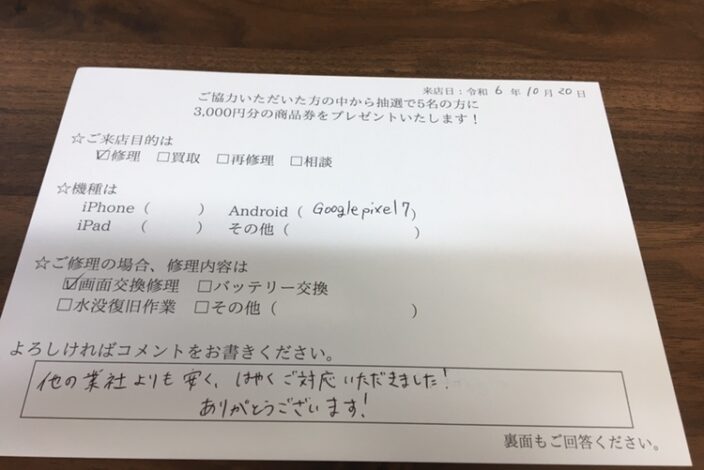 来店日：令和 6 年 10 月 20 日
ご協力いただいた方の中から抽選で5名の方に
3,000円分の商品券をプレゼントいたします！
☆ご来店目的は
☑修理 □買取 □再修理 □相談
☆機種は
iPhone（　　　） Android（ Google pixel 7）
iPad　（　　　） その他（　　　　　　　　）
☆ご修理の場合、修理内容は
☑画面交換修理 □バッテリー交換
□水没復旧作業 □その他（　　　　　　　　）
よろしければコメントをお書きください。
他の業社よりも安く、はやくご対応いただきました！
ありがとうございます！
裏面もご回答ください。